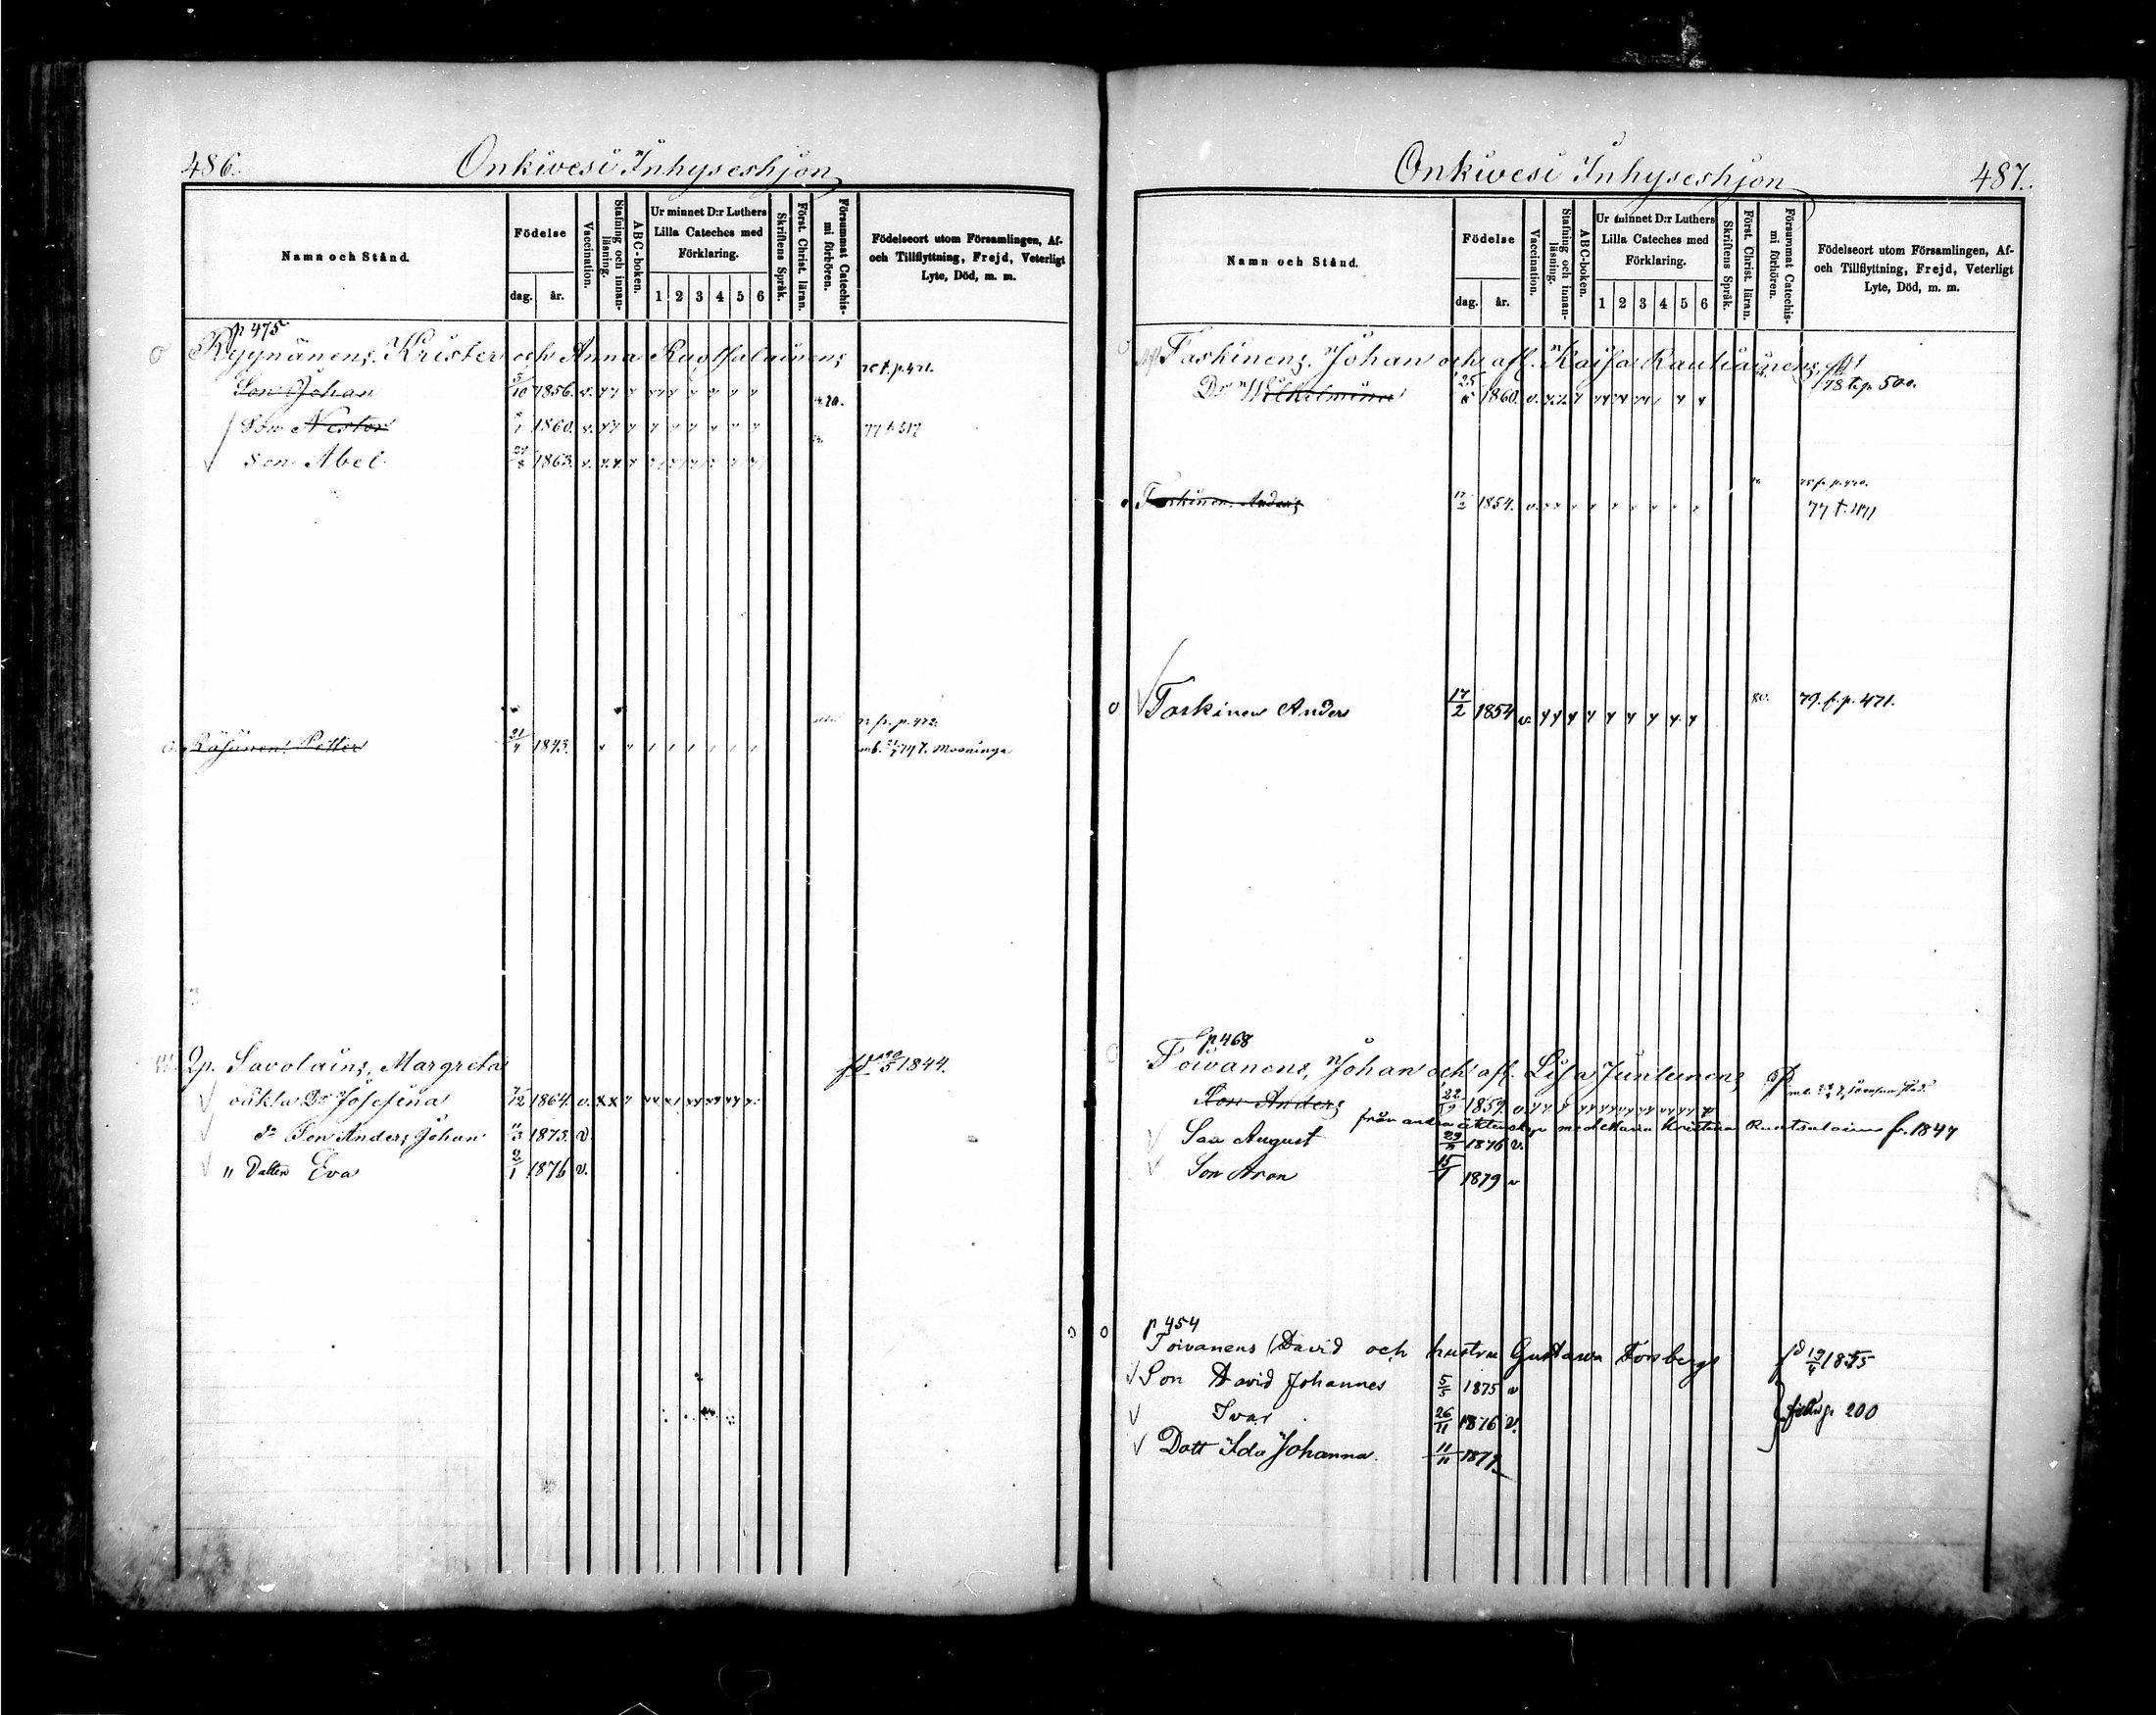 486.
Onkivesi Inhyseshjon
Namn och Stånd.
Födelse
dag. år.
Vaccination.
Stafning och innanläsning.
ABC-boken.
Ur minnet D:r Luthers
Lilla Cateches med
Förklaring.
1 2 3 4 5 6
Skriftens Språk.
Först. Christ. läran.
Försummat Catechismi förhören.
Födelseort utom Församlingen, Af-
och Tillflyttning, Frejd, Veterligt
Lyte, Död, m. m.
p 475
Ryynänens, Krister och Anna Ruotsalainens
Son Johan 5/10 1856. v.
Son Nestor 1860. v. 77 t. 517
Son Abel 1863. v.
Räsänen Petter 21/4 1843. p. 472.
Savolains, Margreta fd 1844.
oäkta Dr Josefina 7/12 1864. v.
do Son Anders Johan 11/3 1873. v.
" Dottr Eva 2/1 1876 v.
487.
Onkivesi Inhyseshjon
Namn och Stånd.
Födelse
dag. år.
Vaccination.
Stafning och innanläsning.
ABC-boken.
Ur minnet D:r Luthers
Lilla Cateches med
Förklaring.
1 2 3 4 5 6
Skriftens Språk.
Först. Christ. läran.
Försummat Catechismi förhören.
Födelseort utom Församlingen, Af-
och Tillflyttning, Frejd, Veterligt
Lyte, Död, m. m.
Taskinens, Johan och afl. Kaisa Rautiainens
Dr Wilhelmina 1860. v. 78 t. p. 500.
Taskinen Anders 17/2 1854. v.
Taskinen Anders 17/2 1854 v. 80. 79. f. p. 471.
p 468
Toivanens, Johan och afl. Lisa Juntunens
Son Anders 22/9 1859. v.
från andra äktenskap med Maria Kristina Ruotsalainen f. 1847
Son August 1876 v.
Son Aron 15/1 1879 v
p 454
Toivanens David och hustru Gustava Forsbergs fd 19/4 1855
Son David Johannes 5/5 1875 v
Ivar 26/11 1876 v.
Dott Ida Johanna. 11/11 1879
200